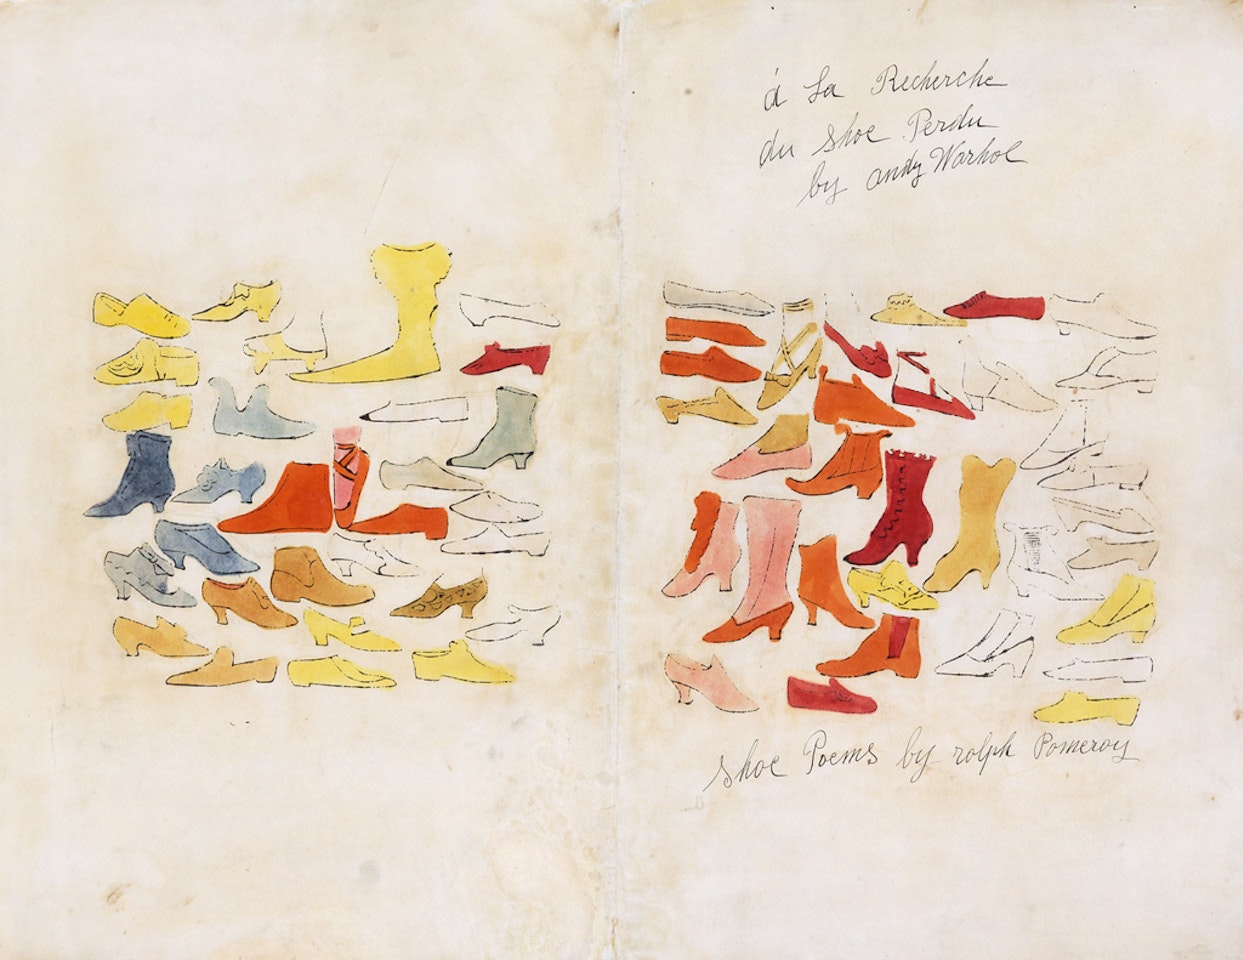 á La Recherche
du Shoe Perdu
by andy Warhol
shoe Poems by rolph Pomeroy